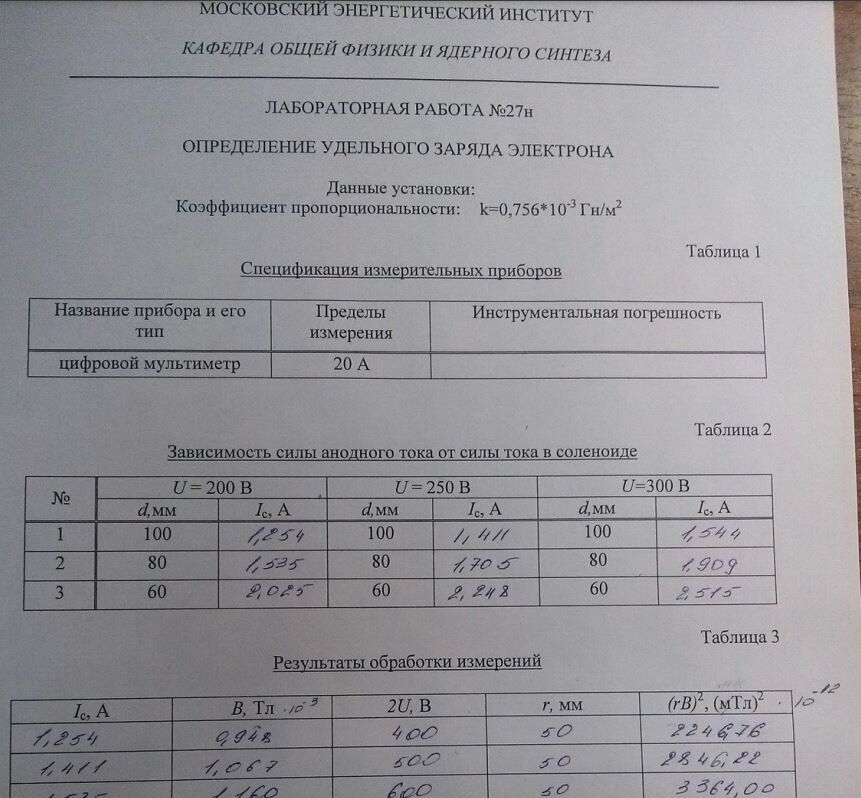 МОСКОВСКИЙ ЭНЕРГЕТИЧЕСКИЙ ИНСТИТУТ
КАФЕДРА ОБЩЕЙ ФИЗИКИ И ЯДЕРНОГО СИНТЕЗА
ЛАБОРАТОРНАЯ РАБОТА №27н
ОПРЕДЕЛЕНИЕ УДЕЛЬНОГО ЗАРЯДА ЭЛЕКТРОНА
Данные установки:
Коэффициент пропорциональности: k=0,756*10⁻³ Гн/м²
Таблица 1
Спецификация измерительных приборов
Название прибора и его тип Пределы измерения Инструментальная погрешность
цифровой мультиметр 20 А
Таблица 2
Зависимость силы анодного тока от силы тока в соленоиде
№ U = 200 В U = 250 В U=300 В
d,мм Iс, А d,мм Iс, А d,мм Iс, А
1 100 1,254 100 1,411 100 1,544
2 80 1,535 80 1,705 80 1,909
3 60 2,025 60 2,248 60 2,515
Таблица 3
Результаты обработки измерений
Iс, А B, Тл ·10⁻³ 2U, В r, мм (rB)², (мТл)² · 10⁻¹²
1,254 0,948 400 50 2246,76
1,411 1,067 500 50 2846,22
1,535 1,160 600 50 3364,00